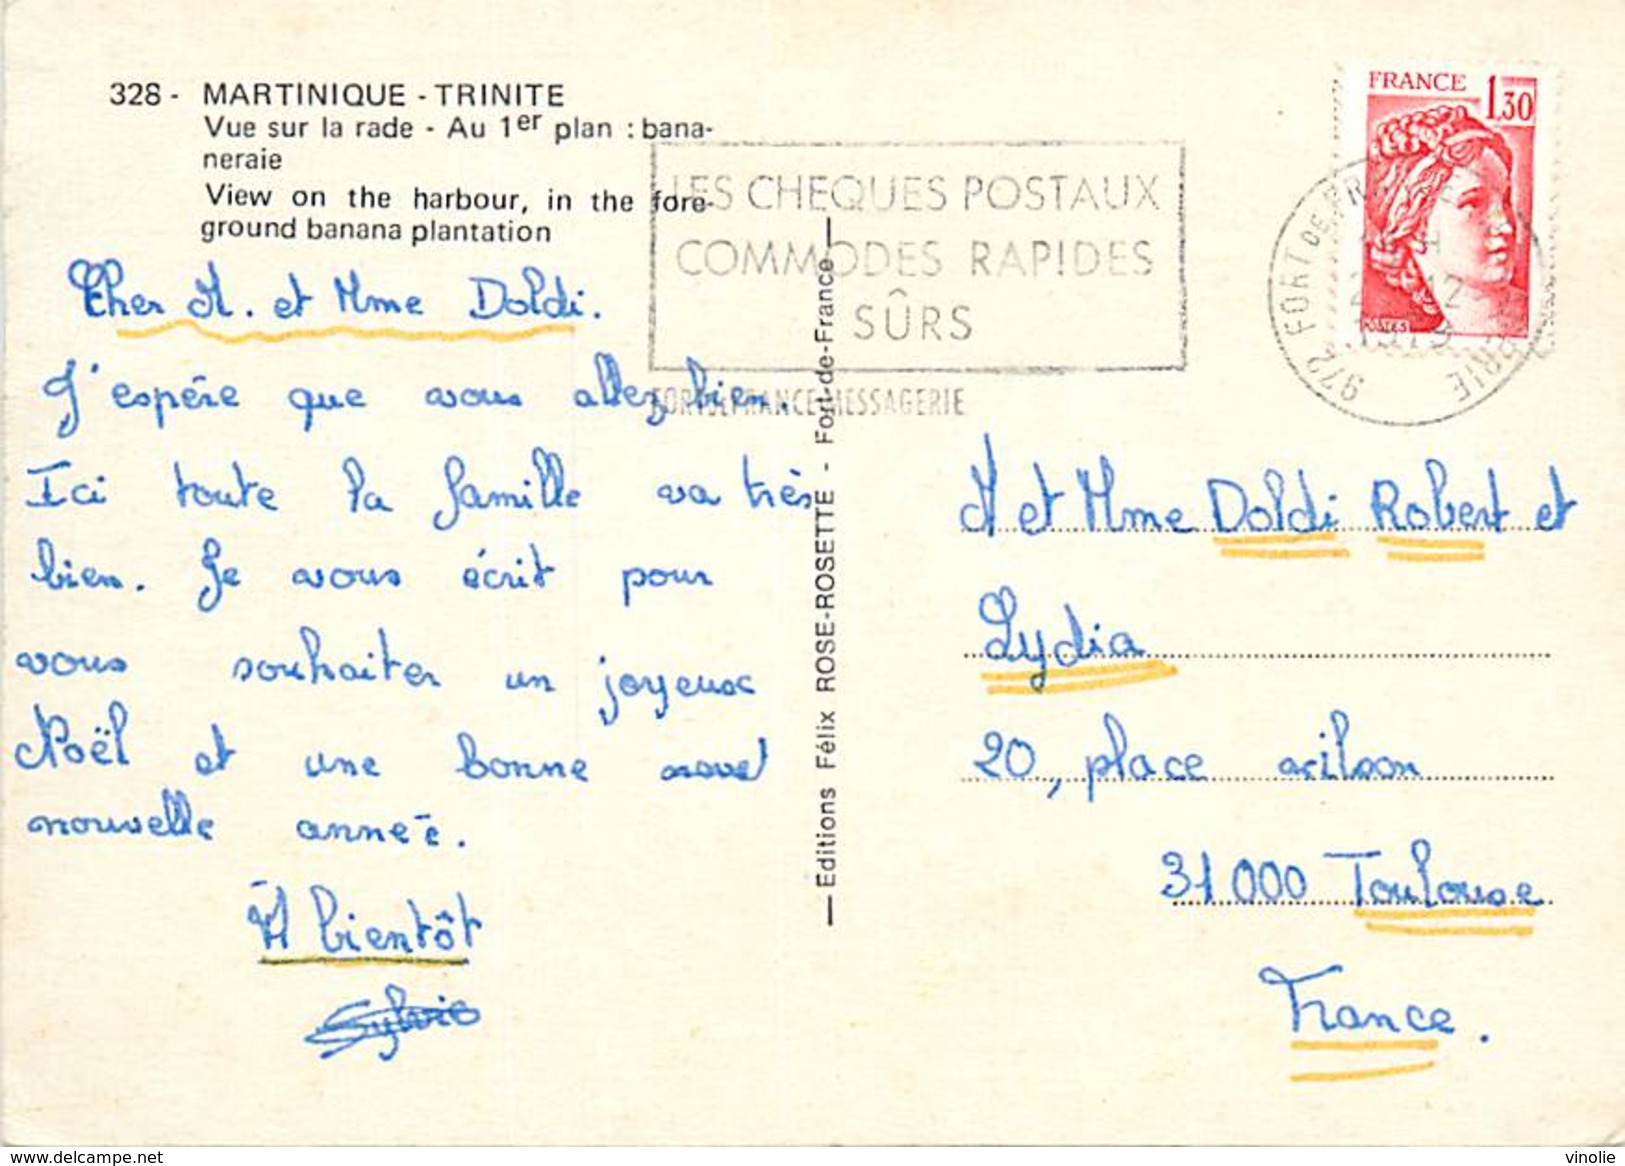 328 - MARTINIQUE - TRINITE
Vue sur la rade - Au 1er plan : bana-
neraie
View on the harbour, in the fore-
ground banana plantation
Cher M. et Mme Doldi.
J'espére que vous allez bien.
Ici toute la famille va très
bien. Je vous écrit pour
vous souhaiter un joyeux
Noël et une bonne
nouvelle année.
A bientôt
Sylvie
Editions Félix ROSE-ROSETTE - Fort-de-France
LES CHEQUES POSTAUX
COMMODES RAPIDES
SÛRS
FORT DE FRANCE MESSAGERIE
FRANCE
1,30
POSTES
972 FORT DE FRANCE
12
1979
M et Mme Doldi Robert et
Lydia
20, place
31000 Toulouse
France.
delcampe.net
vinolie